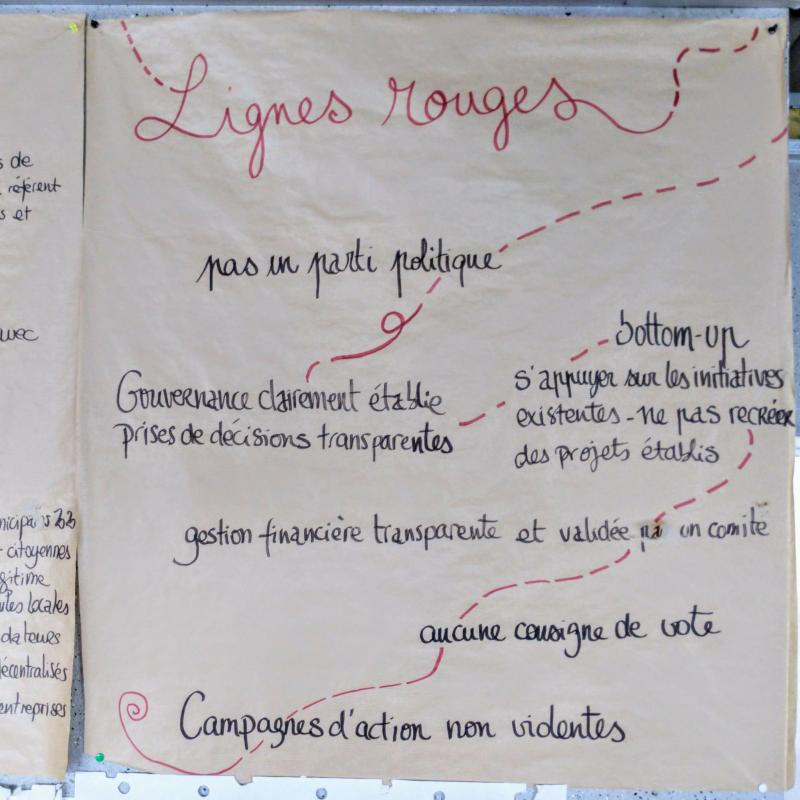 s de
référent
s et
avec
citoyennes
gitime
locales
dateurs
décentralisés
entreprises
Lignes rouges
pas un parti politique
Gouvernance clairement établie
prises de décisions transparentes
bottom-up
s'appuyer sur les initiatives
existentes - ne pas recréer
des projets établis
gestion financière transparente et validée un comité
aucune consigne de vote
Campagnes d'action non videntes